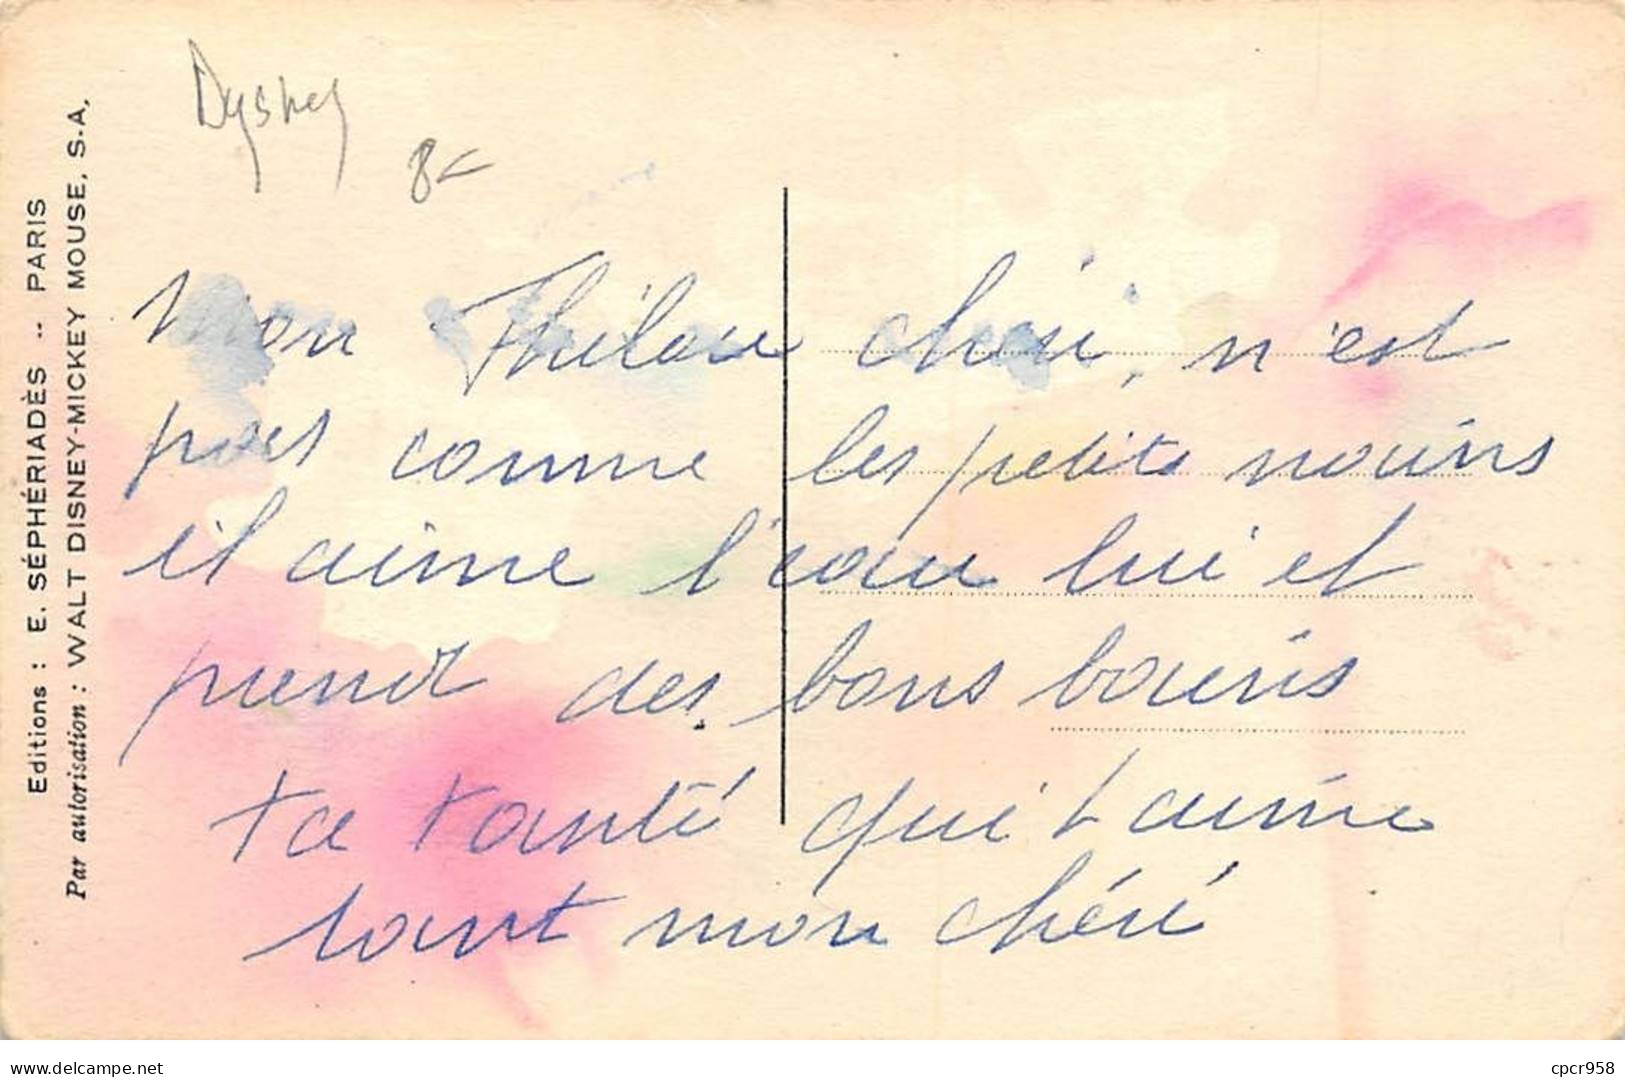 Dysney
8
Editions : E. SÉPHÉRIADÈS -- PARIS
Par autorisation : WALT DISNEY-MICKEY MOUSE, S-A,
Mon Philou chéri, n'est
pas comme les petits marins
il aime l'eau lui et
prend des bons bains
ta tante qui t'aime
tant mon chéri
delcampe.net
cpcr958